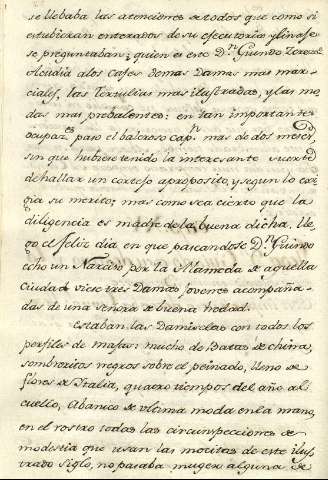 se llebaba las atenciones de todos que como si
estubieran enterados de su efecutoria y linage
se preguntaban; quien es este Dn. Guindo Zerezo?
Acudia a los Cafes, Tomas Damas mas mar-
ciales, las Tertulias mas ilustradas, y las mo-
das mas probalentes; en tan importantes
ocupazs. paso el baleroso capn. mas de dos meses,
sin que hubiese tenido la interesante suerte
de hallar un cortejo aproposito, y segun lo exi-
gia su merito; mas como sea cierto que la
diligencia es madre de la buena dicha, lle-
go el feliz dia en que paseandose Dn. Guindo
echo un Narziso por la Alameda de aquella
ciudad viese tres Damas Jovenes acompaña-
das de una señora de buena hedad.
Estaban las Damiselas con todos los
perfiles de mafas: mucho de Batas de china,
sombreritos negros sobre el peinado, lleno de
flores de Italia, quatro tiempos del año al
cuello, Abanico de ultima moda en la mano,
en el rostro todas las circunspecciones de
modestia que usan las mocitas de este ilus-
trado Siglo, no pasaba muger alguna de